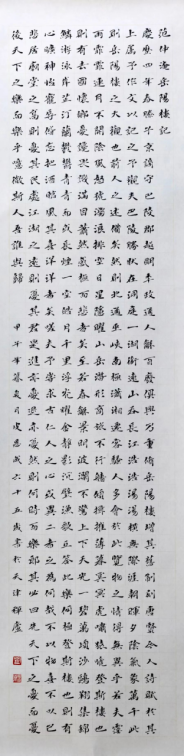 范仲淹岳陽樓記
慶曆四年春滕子京謫守巴陵郡越明年政通人和百廢具興乃重修岳陽樓增其舊制刻唐賢今人詩賦於其
上屬予作文以記之予觀夫巴陵勝狀在洞庭一湖銜遠山吞長江浩浩湯湯橫無際涯朝暉夕陰氣象萬千此
則岳陽樓之大觀也前人之述備矣然則北通巫峽南極瀟湘遷客騷人多會於此覽物之情得無異乎若夫霪
雨霏霏連月不開陰風怒號濁浪排空日星隱曜山岳潛形商旅不行檣傾楫摧薄暮冥冥虎嘯猿啼登斯樓也
則有去國懷鄉憂讒畏譏滿目蕭然感極而悲者矣至若春和景明波瀾不驚上下天光一碧萬頃沙鷗翔集錦
鱗游泳岸芷汀蘭郁郁青青而或長煙一空皓月千里浮光耀金靜影沉璧漁歌互答此樂何極登斯樓也則有
心曠神怡寵辱皆忘把酒臨風其喜洋洋者矣嗟夫予嘗求古仁人之心或異二者之為何哉不以物喜不以己
悲居廟堂之高則憂其民處江湖之遠則憂其君是進亦憂退亦憂然則何時而樂耶其必曰先天下之憂而憂
後天下之樂而樂乎噫微斯人吾誰與歸 甲午年 月 六十五歲書於天津